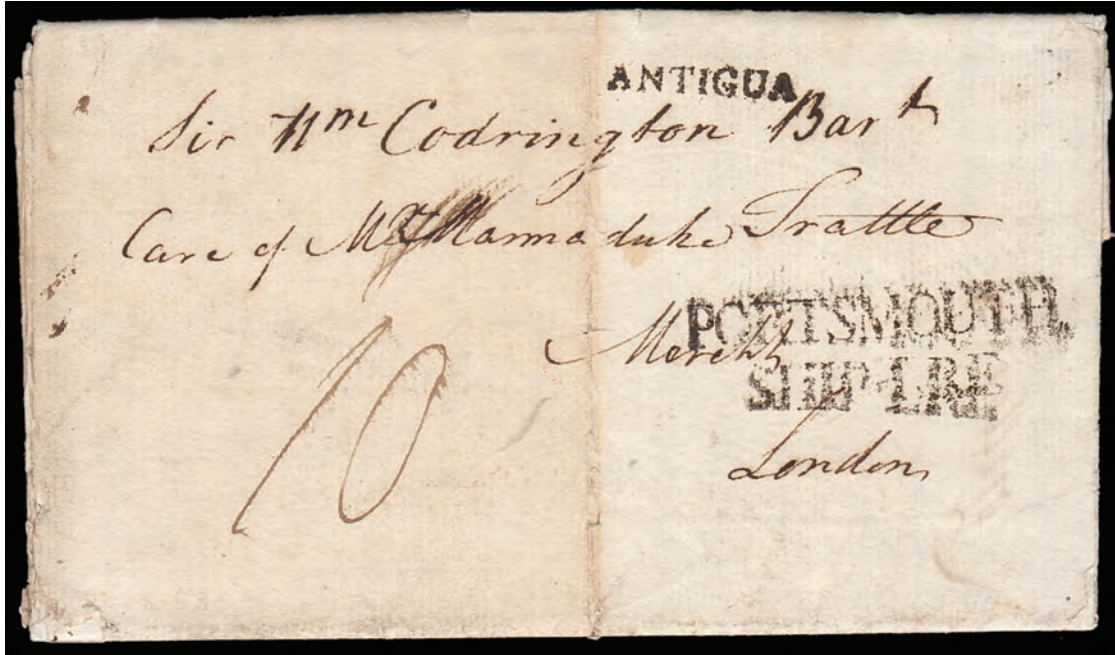 ANTIGUA
Sir Wm Codrington Bart
Care of Mr Marmaduke Trattle
PORTSMOUTH
Mercht
SHIP LRE
London
10